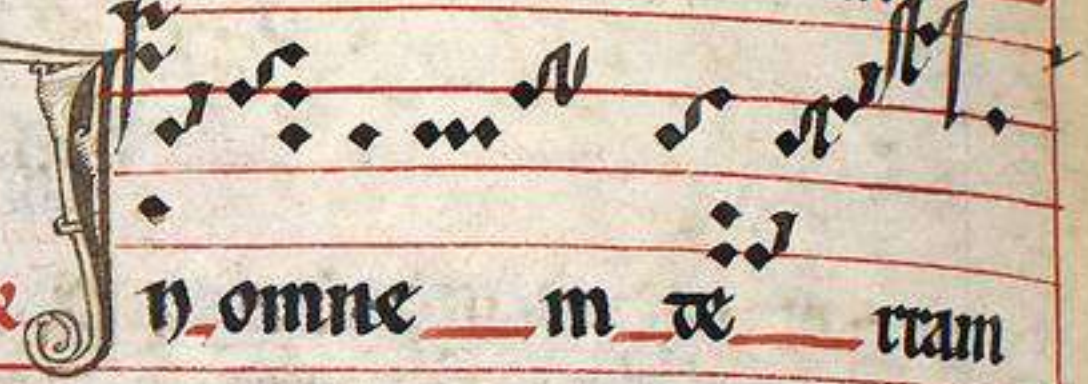 In omne m te rram